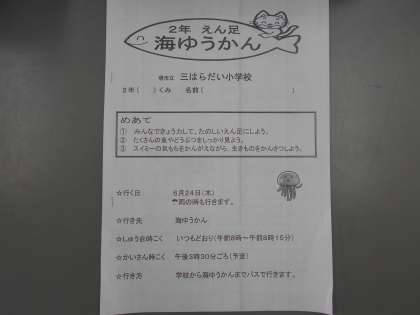 2年 えん足
海ゆうかん
堺市立 三はらだい小学校
2年( )くみ 名前( )
めあて
① みんなできょう力して、たのしいえん足にしよう。
② たくさんの魚やどうぶつをしっかり見よう。
③ スイミーの気もちをかんがえながら、生きものをかんさつしよう。
☆行く日 6月24日(木)
雨の時も行きます。
☆行き先 海ゆうかん
☆しゅう合時こく いつもどおり(午前8時~午前8時15分)
☆かいさん時こく 午後3時30分ごろ(予定)
☆行き方 学校から海ゆうかんまでバスで行きます。